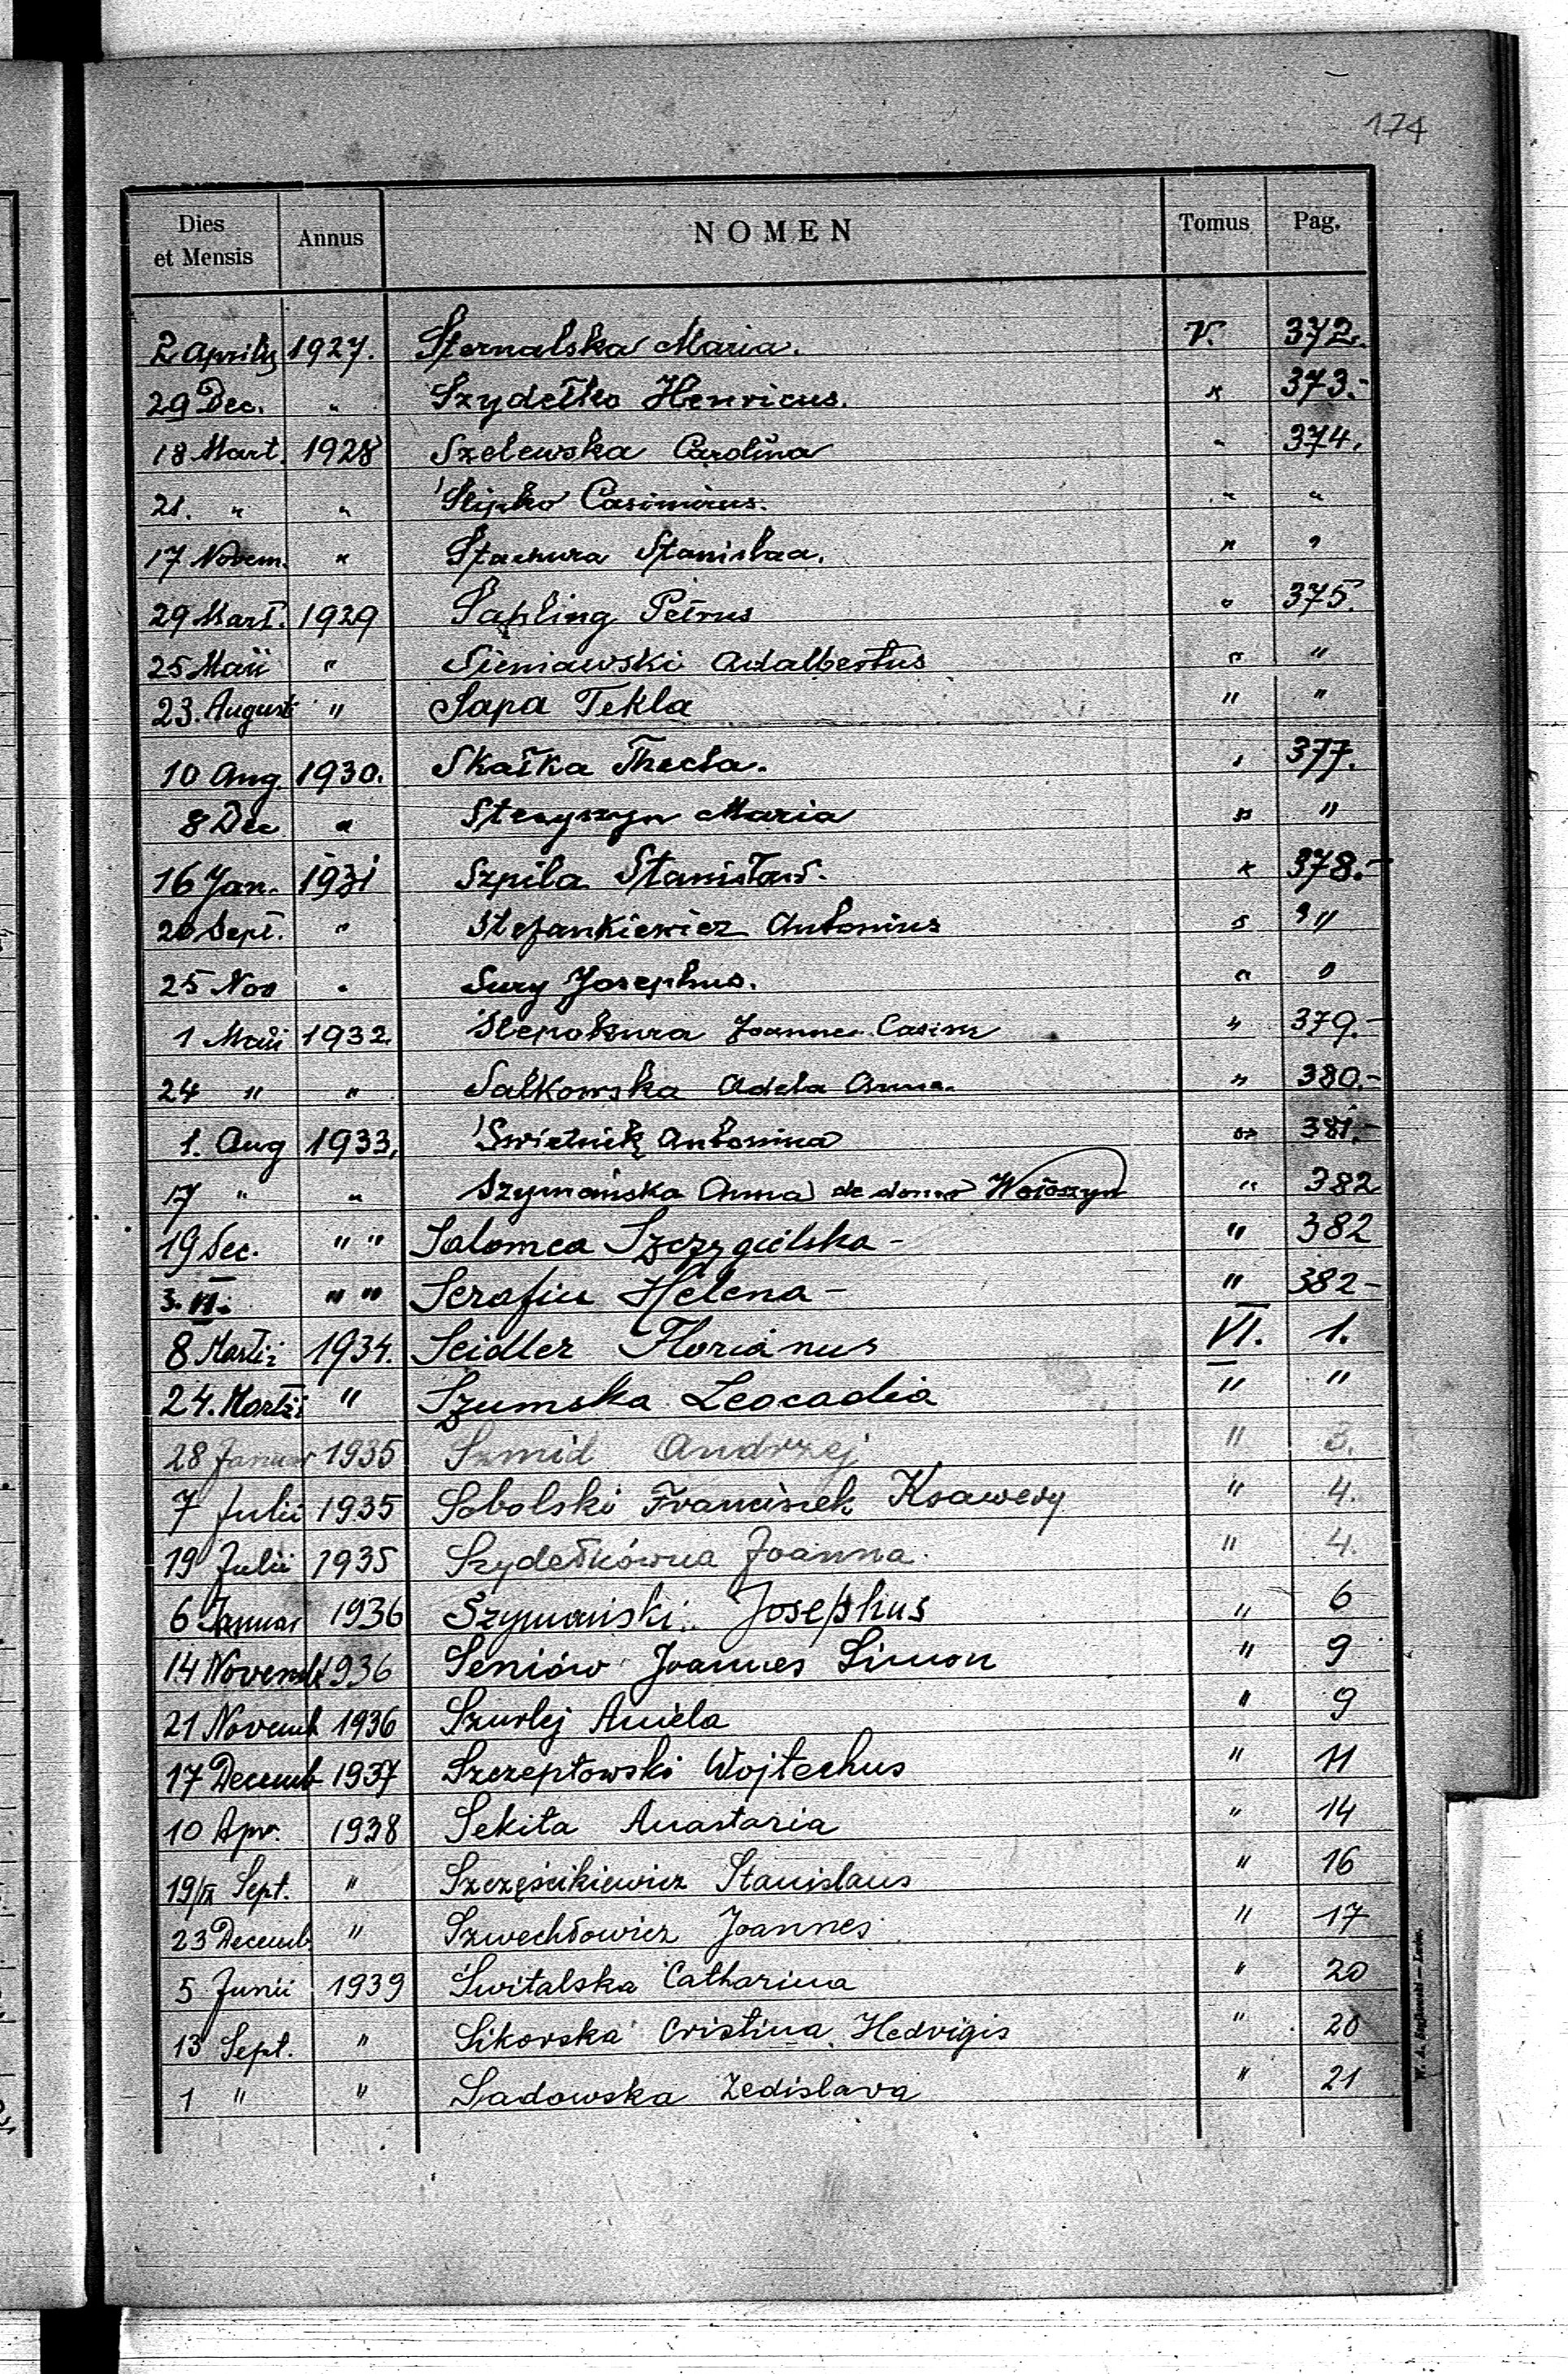 174
Dies et Mensis Annus NOMEN Tomus Pag.
2 Aprilis 1927. Sternalska Maria. V. 372.
29 Dec. " Szydełko Henricus. " 373.-
18 Mart. 1928 Szelewska Carolina " 374.
21. " " Ślipko Casimirus. " "
17 Novem. " Stachura Stanislaa. " "
29 Mart. 1929 Sapling Petrus " 375.
25 Maii " Sieniawski Adalbertus " "
23. Augusti " Sapa Tekla " "
10 Aug. 1930. Skałka Thecla. " 377.
8 Dec " Maria " "
16 Jan. 1931 Szpila Stanisław. " 378.-
20 Sept. " Stefankiewicz Antonius " "
25 Nov " Sury Josephus. " "
1 Maii 1932. Ślepokura Joannes Casim " 379.-
24 " " Sałkowska Adela Anna. " 380.-
1. Aug 1933, Świetnik Antonina " 381.-
17 " " Szymańska Anna de domo Wołoszyn " 382
19 Dec. " " Salomea Szczygielska - " 382
3. VI. " " Serafin Helena - " 382-
8 Martii 1934. Seidler Florianus VI. 1.
24. Martii " Szumska Leocadia " "
28 Januar 1935 Szmid Andrzej " 3.
7 Julii 1935 Sobolski Franciszek Ksawery " 4.
19 Julii 1935 Szydełkówna Joanna. " 4.
6 Januar 1936 Szymański Josephus " 6
14 Novemb 1936 Seniów Joannes Simon " 9
21 Novemb 1936 Szurlej Aniela " 9
17 Decemb 1937 Szczeptowski Wojtechus " 11
10 Apr. 1938 Sekita Anastazia " 14
19/IX Sept. " Szczęścikiewicz Stanislaus " 16
23 Decemb. " Szwechłowicz Joannes " 17
5 Junii 1939 Świtalska Catharina " 20
13 Sept. " Sikorska Cristina Hedvigis " 20
1 " " Sadowska Zedislava " 21